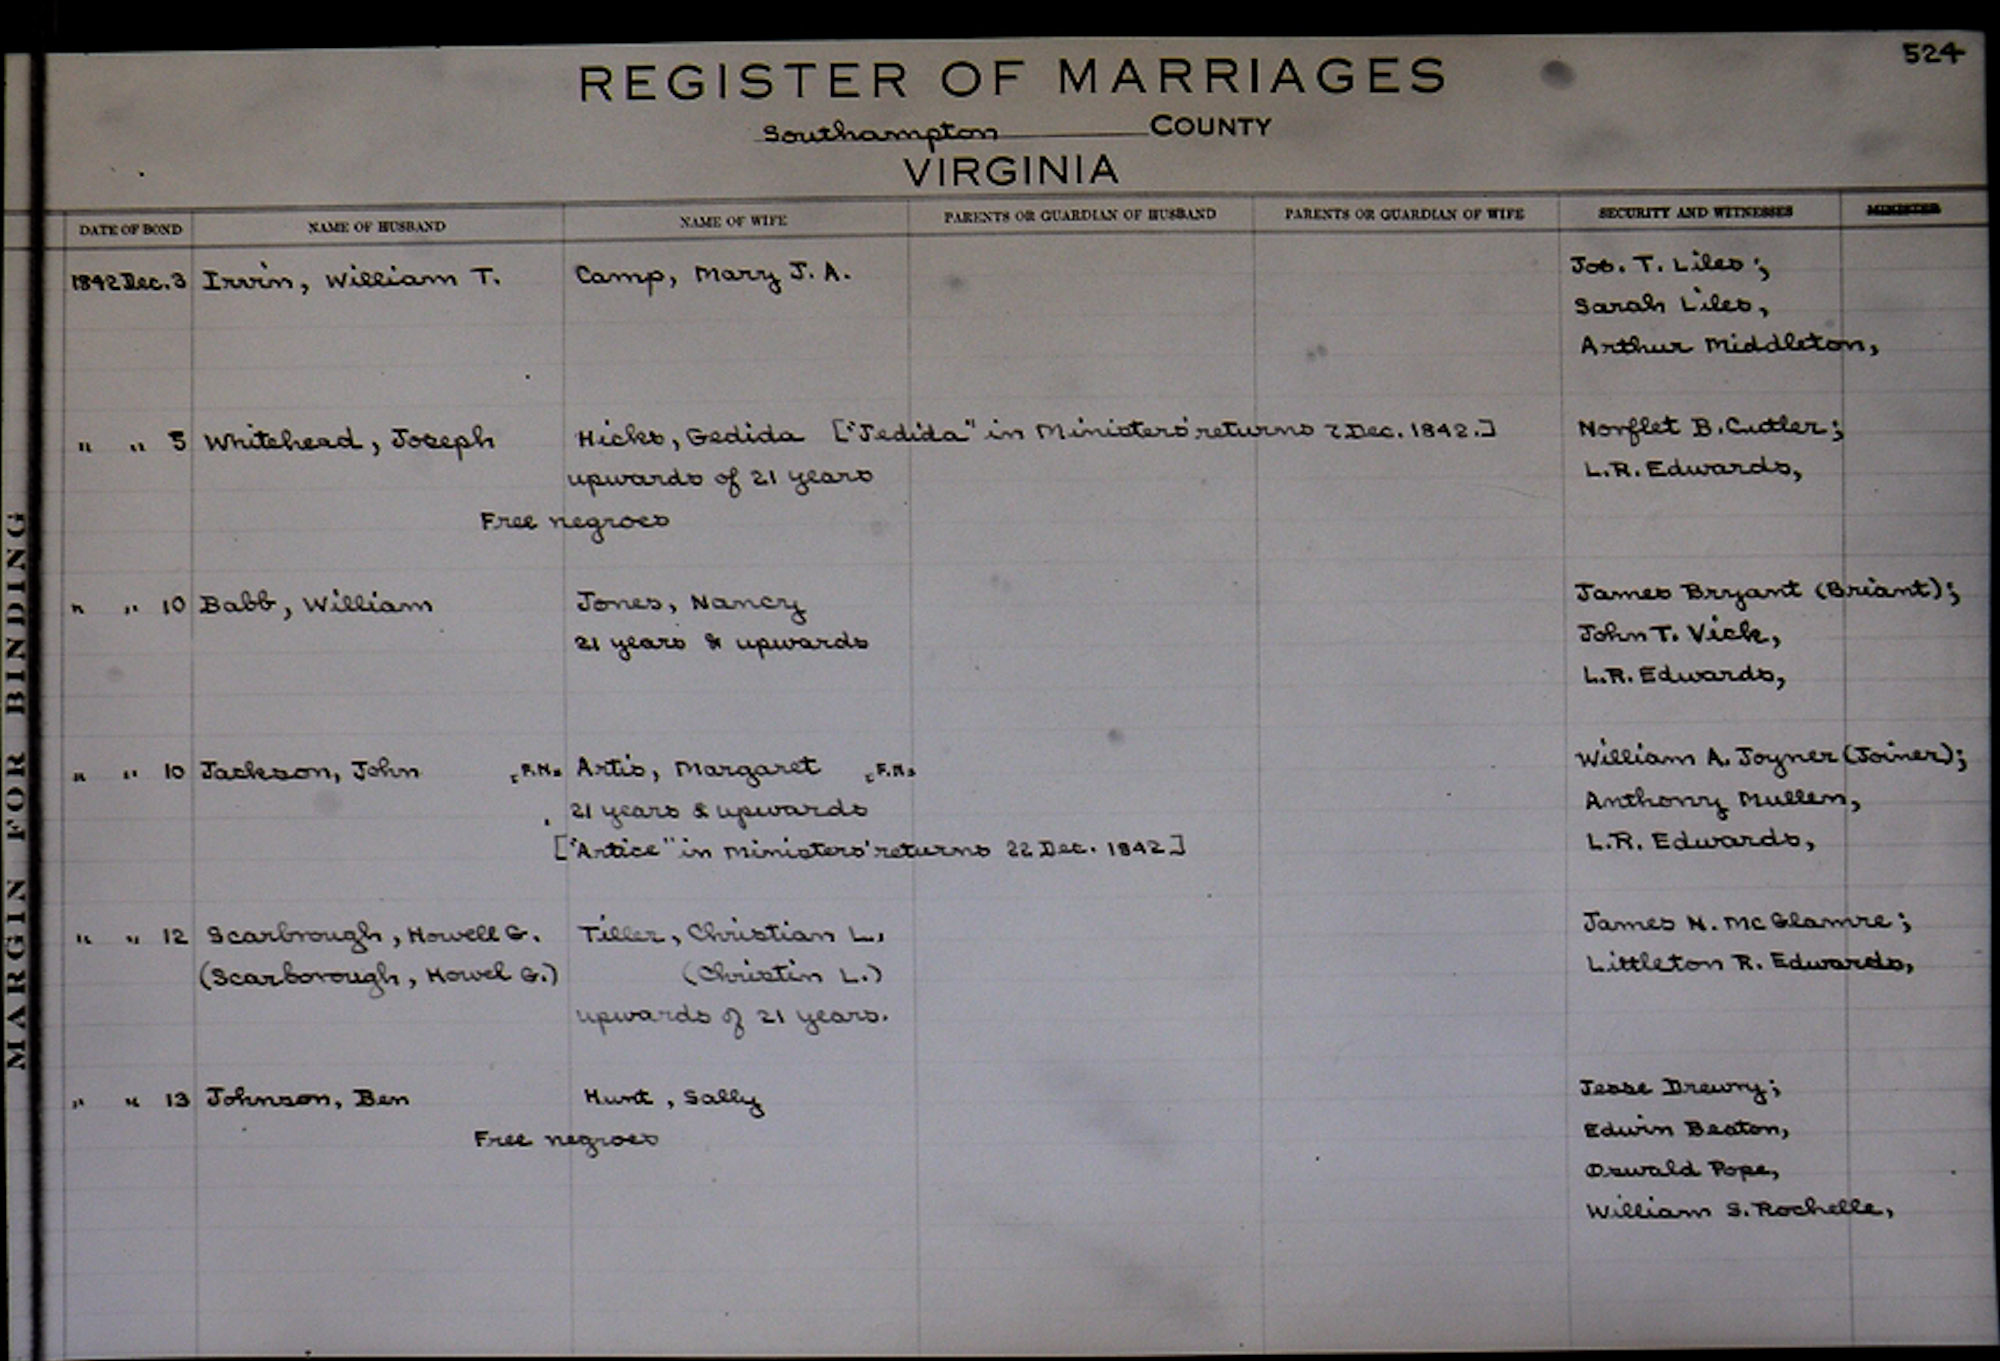 524
REGISTER OF MARRIAGES
Southampton COUNTY
VIRGINIA
DATE OF BOND NAME OF HUSBAND NAME OF WIFE PARENTS OR GUARDIAN OF HUSBAND PARENTS OR GUARDIAN OF WIFE SECURITY AND WITNESSES MINISTER
1842 Dec. 3 Irvin, William T. Camp, Mary J. A. Jos. T. Liles;
Sarah Liles,
Arthur Middleton,
" " 5 Whitehead, Joseph Hicks, Gedida ["Jedida" in Ministers' returns 7 Dec. 1842.] Norflet B. Cutler;
upwards of 21 years L.R. Edwards,
Free negroes
" " 10 Babb, William Jones, Nancy James Bryant (Briant);
21 years & upwards John T. Vick,
L.R. Edwards,
" " 10 Jackson, John [F.N.] Artis, Margaret [F.N.] William A. Joyner (Joiner);
21 years & upwards Anthony Mullen,
["Artice" in Ministers' returns 22 Dec. 1842] L.R. Edwards,
" " 12 Scarbrough, Howell G. Tiller, Christian L, James N. McGlamre;
(Scarborough, Howel G.) (Christin L.) Littleton R. Edwards,
upwards of 21 years.
" " 13 Johnson, Ben Hunt, Sally Jesse Drewry;
Free negroes Edwin Beaton,
Oswald Pope,
William S. Rochelle,
MARGIN FOR BINDING